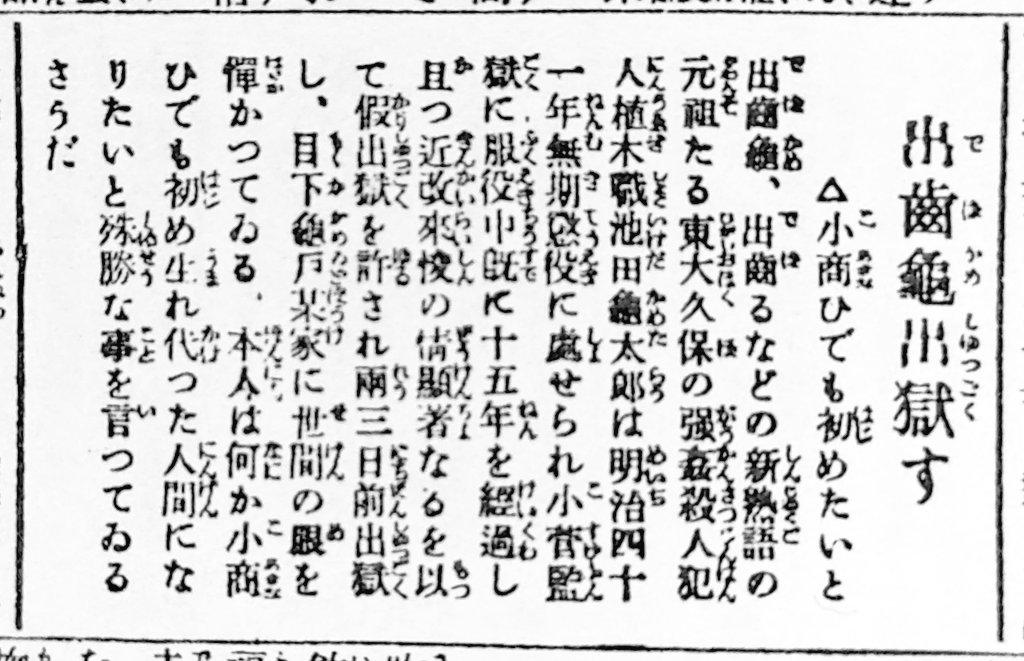 出齒龜出獄す
△小商ひでも初めたいと
出齒龜、出齒るなどの新熟語の
元祖たる東大久保の强姦殺人犯
人植木職池田龜太郎は明治四十
一年無期懲役に處せられ小菅監
獄に服役中既に十五年を經過し
且つ近改來悛の情顯著なるを以
て假出獄を許され兩三日前出獄
し、目下龜戸某家に世間の眼を
憚かつてゐる、本人は何か小商
ひでも初め生れ代つた人間にな
りたいと殊勝な事を言つてゐる
さうだ